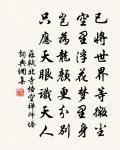 已將世界等微塵
空裏浮花夢裏身
豈為龍顏更分別
只應天眼識天人
蘇軾北寺悟空禪師塔
詞典網集